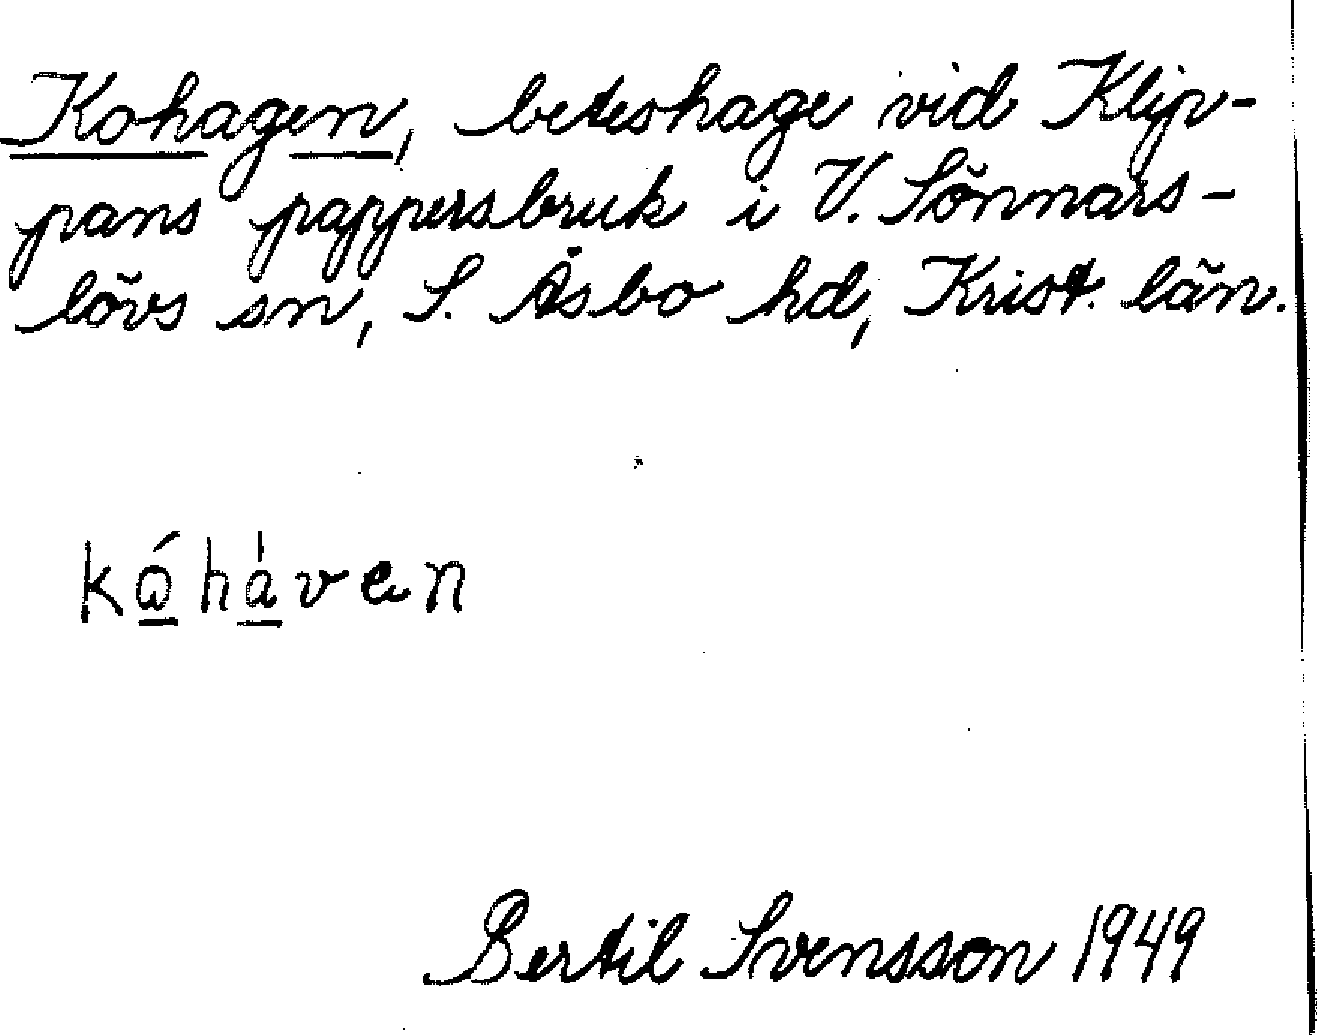 Kohagen, beteshage vid Klip-
pans pappersbruk i V. Sönnars-
lövs sn, S. Åsbo hd, Krist. län.
kóhàven
Bertil Svensson 1949